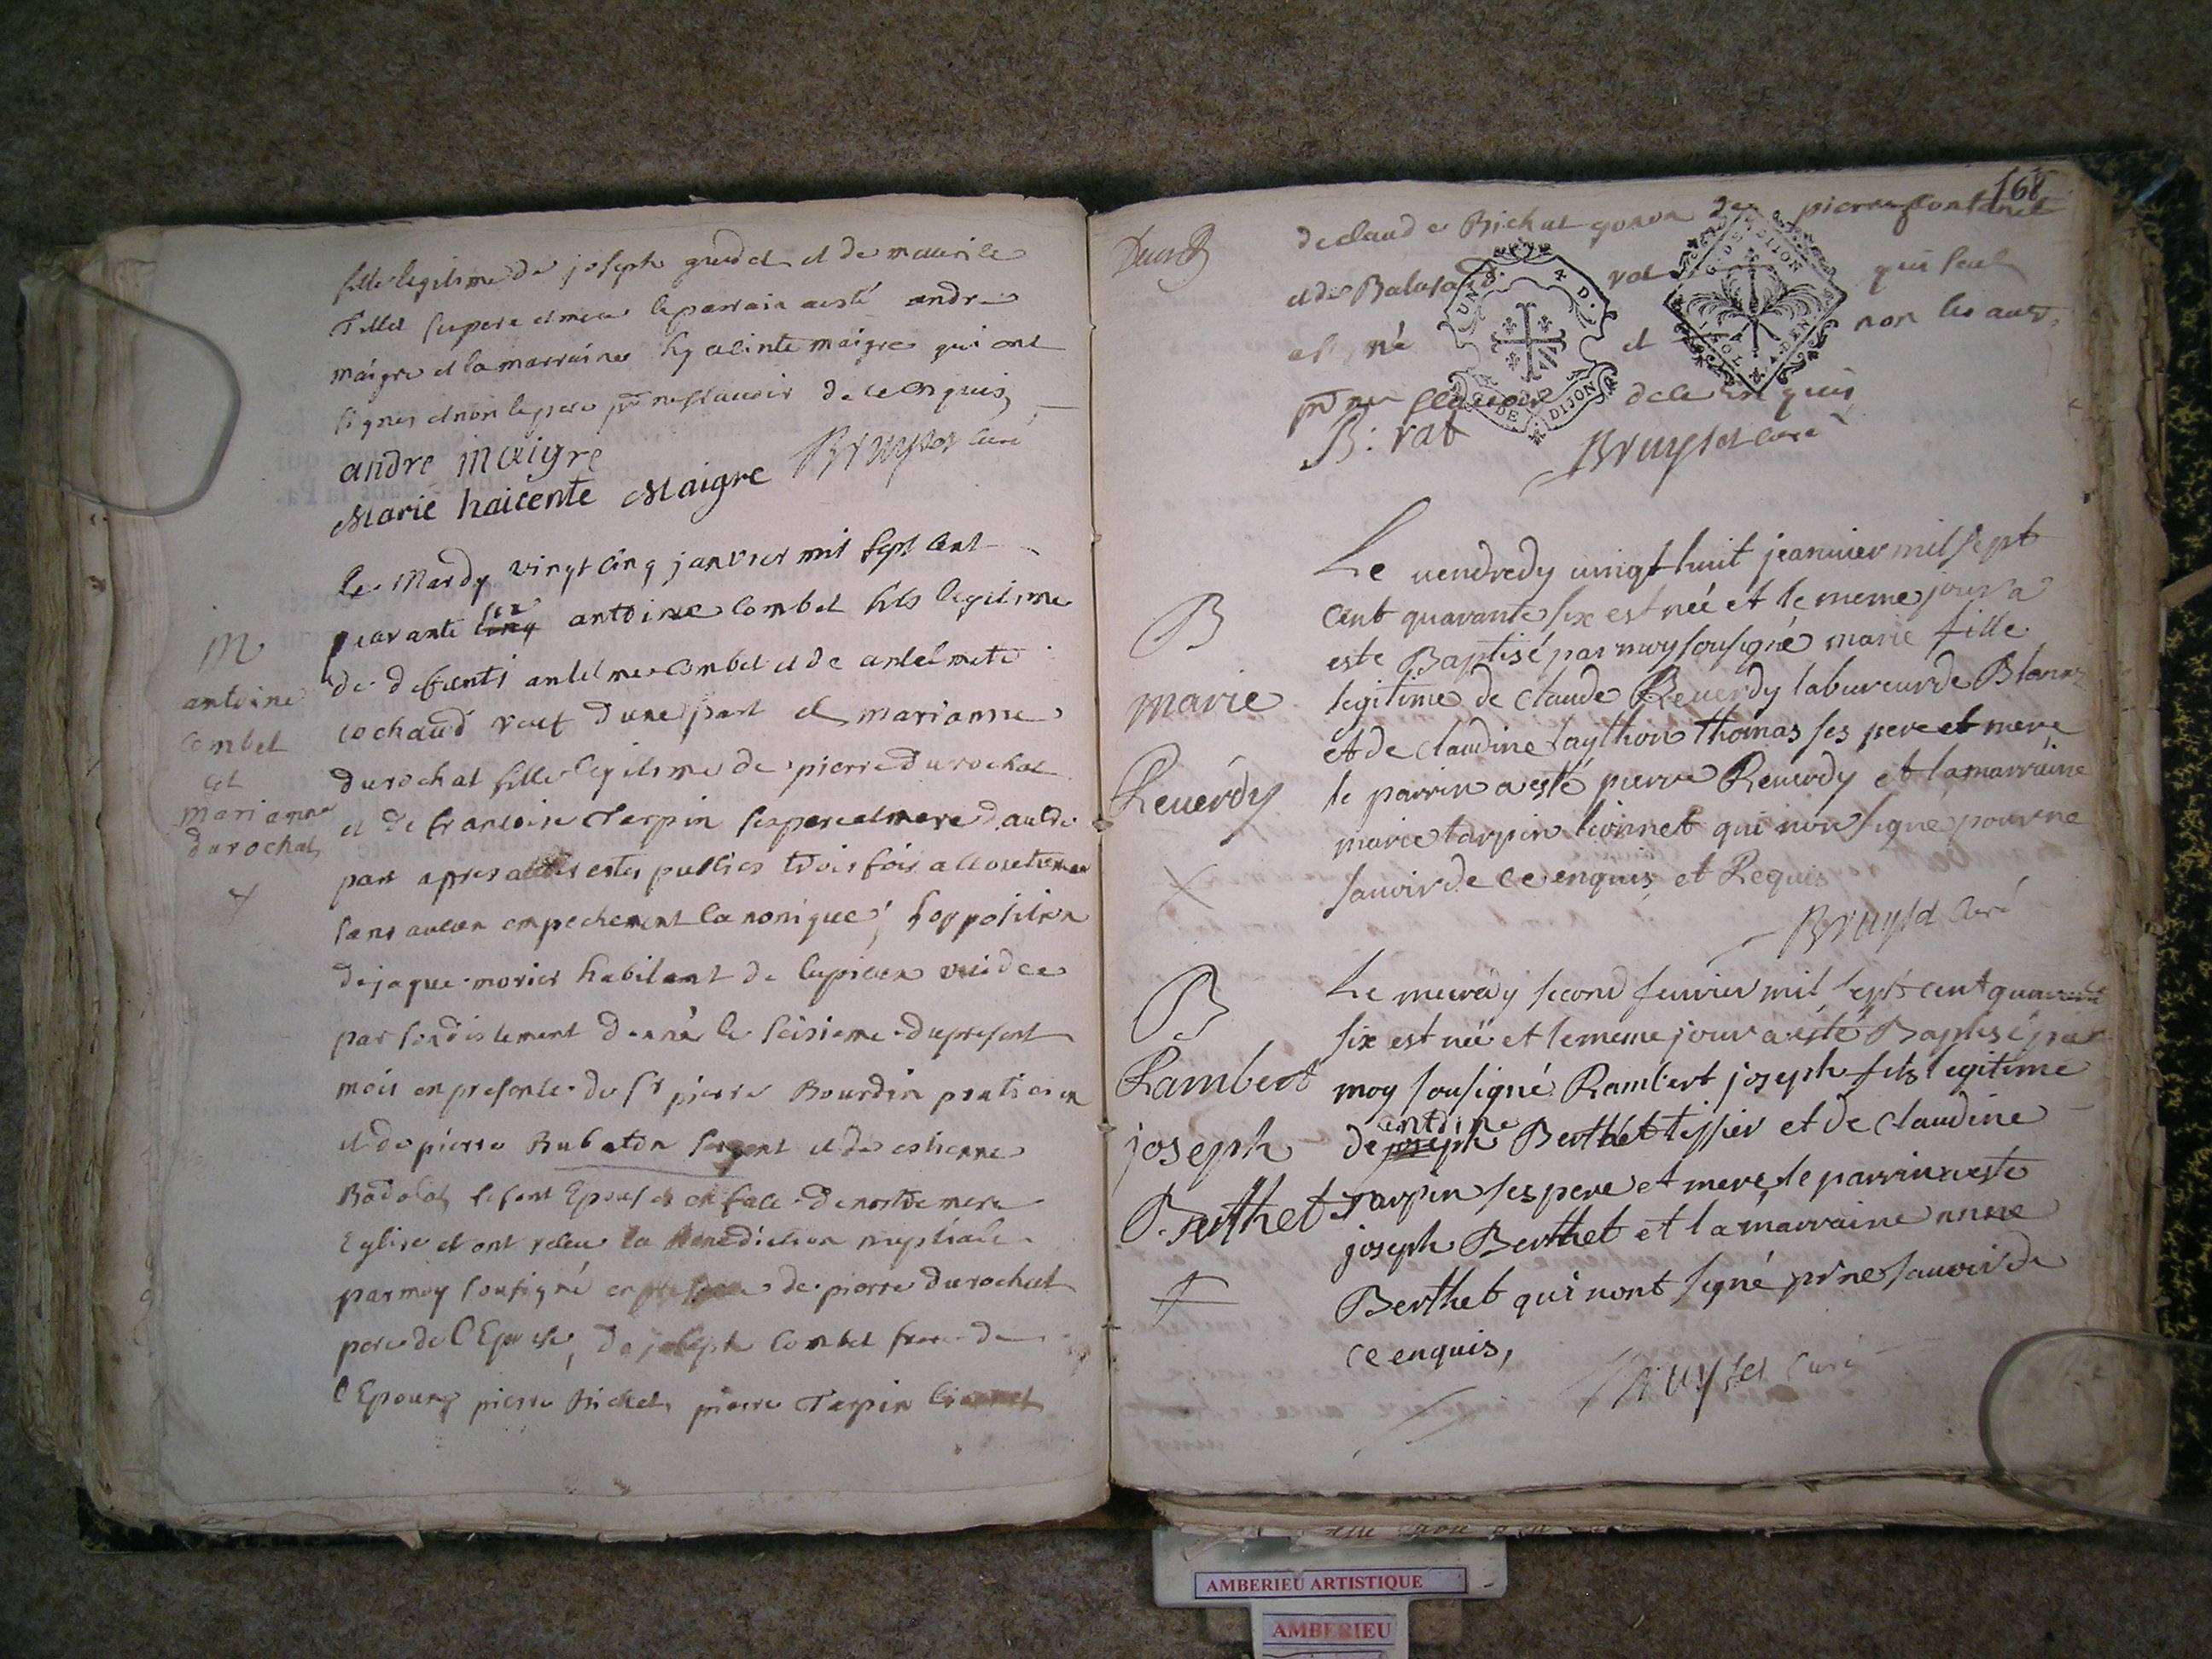 fille legitime de joseph et de
Tillet ses pere et mere le parrain a esté andre
maigre et la marraine hyacinte maigre qui ont
signes et non le pere pr ne scavoir de ce enquis
andre maigre
Bruyset curé
Marie haicente Maigre
M
antoine
combet
et
marianne
durochat
le Mardy vingt cinq janvier mil sept cent
quarante cinq six antoine combet fils legitime
de defunts antelme combet et de antelmete
cochaud veuf dune part et marianne
durochat fille legitime de pierre durochat
et de francoise Terpin ses pere et mere dautre
part apres publies trois fois
sans aucun empechement canonique, l'opposition
de jaque morier habitant de vuidee
par donné le seisieme du present
mois en presence du Sr pierre Bourdin praticien
et de pierre Rubaton sergent et de estienne
se sont Epousés en face de nostre mere
Eglise et ont recu la Benediction nuptiale
par moy sousigné en de pierre durochat
pere de l'Epouse, de joseph combet frere de
l'Epoux pierre Bichat, pierre Tarpin
168
de claude Bichat de pierre fontanet
et de rat qui seul
signé et non les autres
pr ne scavoir de ce enquis
UN S. 4 D.
G. DE DIJON
G. DE DIJON
B: rat
Bruyset curé
B
marie
Reuerdy
Le vendredy vingt huit jeanvier mil sept
cent quarante six est neé et le meme jour a
este Baptisé par moy sousigné marie fille
legitime de claude Reuerdy laboureur de
et de claudine thomas ses pere et mere
le parrin a esté pierre Reuerdy et la marraine
marie tarpin lionnet qui non signé pour ne
sauoir de ce enquis et Requis
Bruyset curé
B
Rambert
joseph
Berthet
Le mecredy second feuvrier mil sept cent quarente
six est neé et le meme jour a esté Baptisé par
moy sousigné Rambert joseph fils legitime
de joseph antoine Berthet tissier et de claudine
Tarpin ses pere et mere, le parrin a este
joseph Berthet et la marraine anne
Berthet qui nont signé pr ne sauoir de
ce enquis,
Bruyset curé
AMBERIEU ARTISTIQUE
AMBERIEU